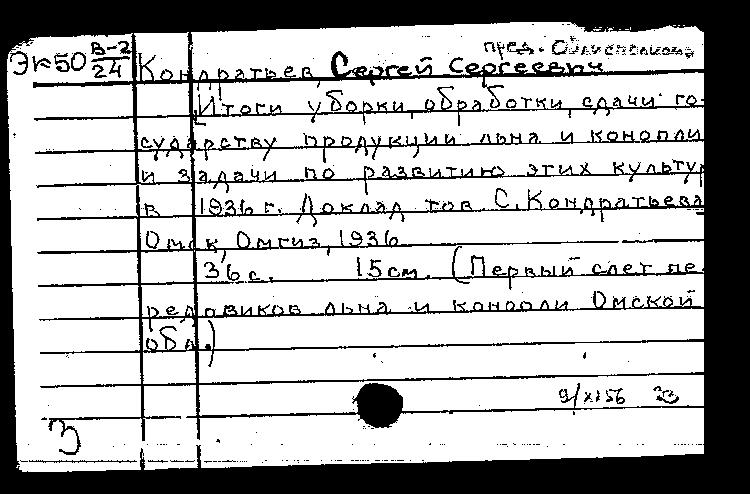 пред. Облисполкома
Эк50 В-2/24 Кондратьев, Сергей Сергеевич
Итоги уборки, обработки, сдачи го-
сударству продукции льна и конопли
и задачи по развитию этих культур
в 1936 г. Доклад тов С. Кондратьева
Омск, Омгиз, 1936
36 с. 15 см. (Первый слет пе-
редовиков льна и конопли Омской
обл.)
9/XI 56
З